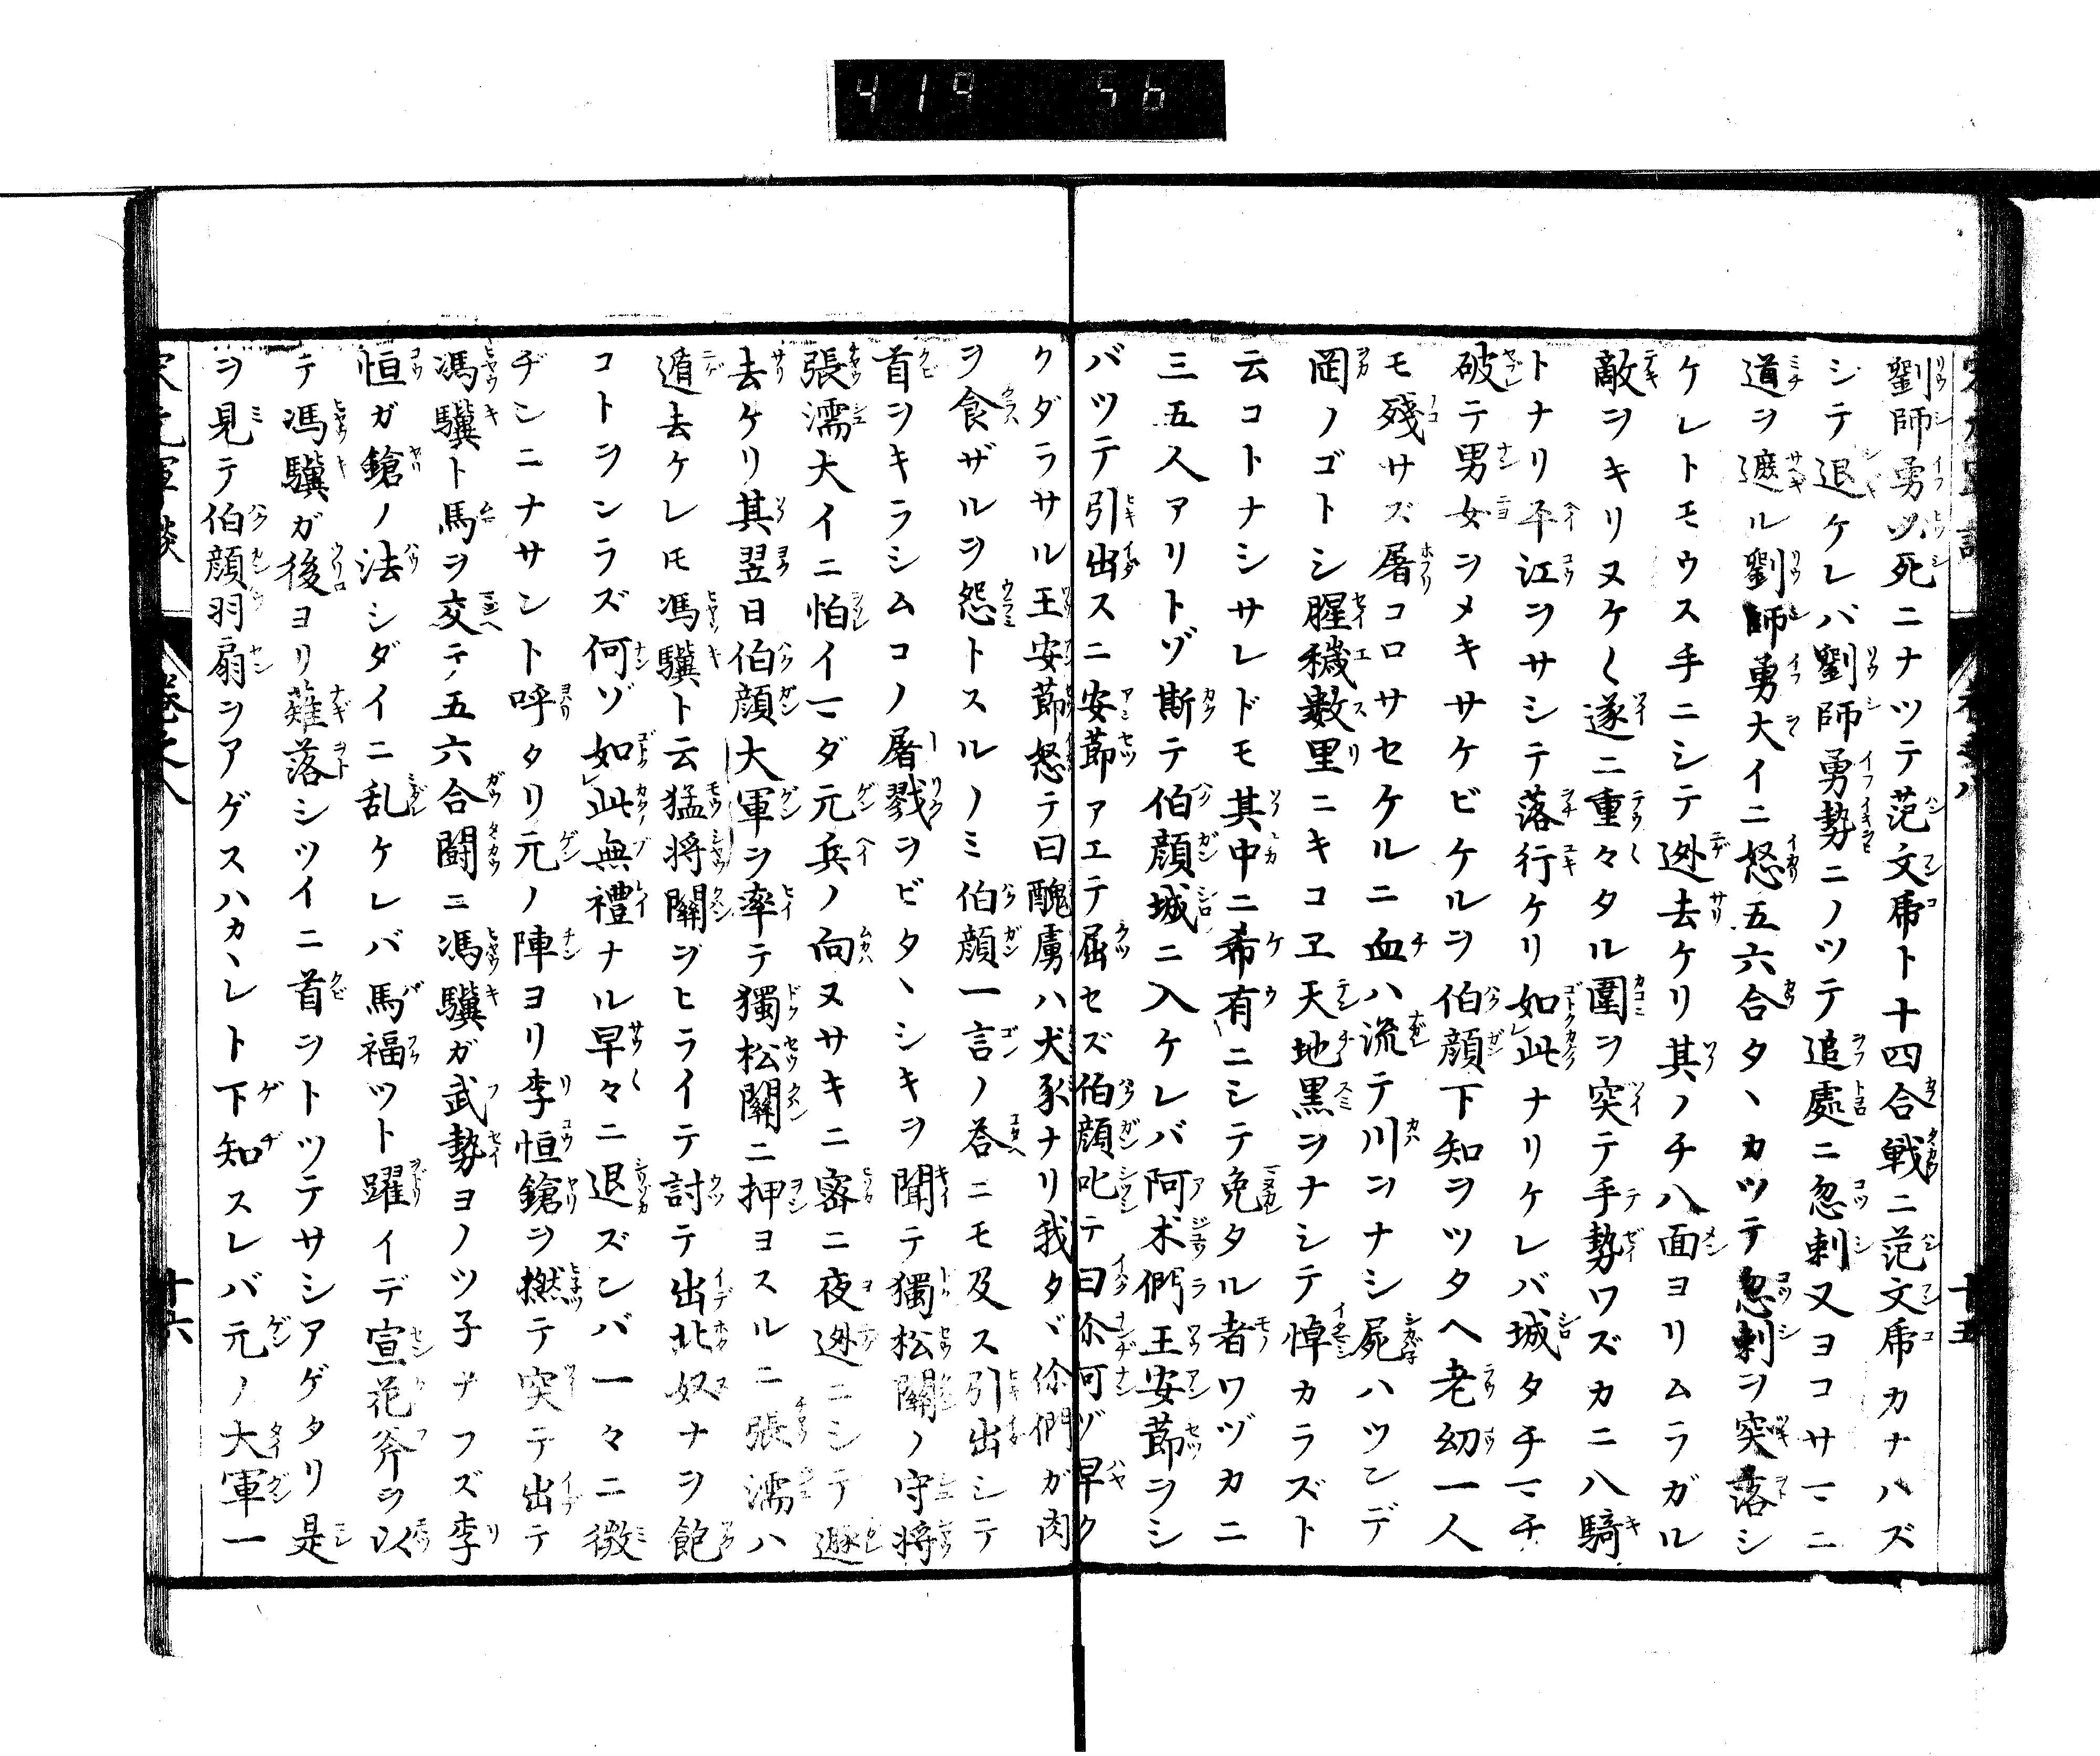 419 56
劉師勇必死ニナツテ范文虎ト十四合戰ニ范文虎カナハズ
シテ退ケレバ劉師勇勢ニノツテ追處ニ忽剌又ヨコサマニ
道ヲ遮ル劉師勇大イニ怒五六合タヽカツテ忽剌ヲ突落シ
ケレトモウス手ニシテ迯去ケリ其ノチ八面ヨリムラガル
敵ヲキリヌケ〱遂ニ重々タル圍ヲ突テ手勢ワズカニ八騎
トナリ平江ヲサシテ落行ケリ如此ナリケレバ城タチマチ
破テ男女ヲメキサケビケルヲ伯顔下知ヲツタヘ老幼一人
モ殘サズ屠コロサセケルニ血ハ流テ川ヲナシ屍ハツンデ
岡ノゴトシ腥穢數里ニキコヱ天地黒ヲナシテ悼カラズト
云コトナシサレドモ其中ニ希有ニシテ免タル者ワヅカニ
三五人アリトゾ斯テ伯顔城ニ入ケレバ阿朮們王安節ヲシ
バツテ引出スニ安節アエテ屈セズ伯顔叱テ曰伱何ゾ早ク
クダラサル王安節怒テ曰醜虜ハ犬豕ナリ我タヾ伱們ガ肉
ヲ食ザルヲ怨トスルノミ伯顔一言ノ荅ニモ及ス引出シテ
首ヲキラシムコノ屠戮ヲビタヽシキヲ聞テ獨松關ノ守将
張濡大イニ怕イマダ元兵ノ向ヌサキニ密ニ夜迯ニシテ遯
去ケリ其翌日伯顔大軍ヲ率テ獨松關ニ押ヨスルニ張濡ハ
遁去ケレモ馮驥ト云猛将關ヲヒライテ討テ出北奴ナヲ飽
コトヲンラズ何ゾ如此無禮ナル早々ニ退ズンバ一々ニ微
ヂンニナサント呼タリ元ノ陣ヨリ李恒鎗ヲ撚テ突テ出テ
馮驥ト馬ヲ交テ五六合闘ニ馮驥ガ武勢ヨノツ子ナフズ李
恒ガ鎗ノ法シダイニ乱ケレバ馬福ツト躍イデ宣花斧ヲ以
テ馮驥ガ後ヨリ薙落シツイニ首ヲトツテサシアゲタリ是
ヲ見テ伯顔羽扇ヲアゲスハカヽレト下知スレバ元ノ大軍一
卷之八
十六